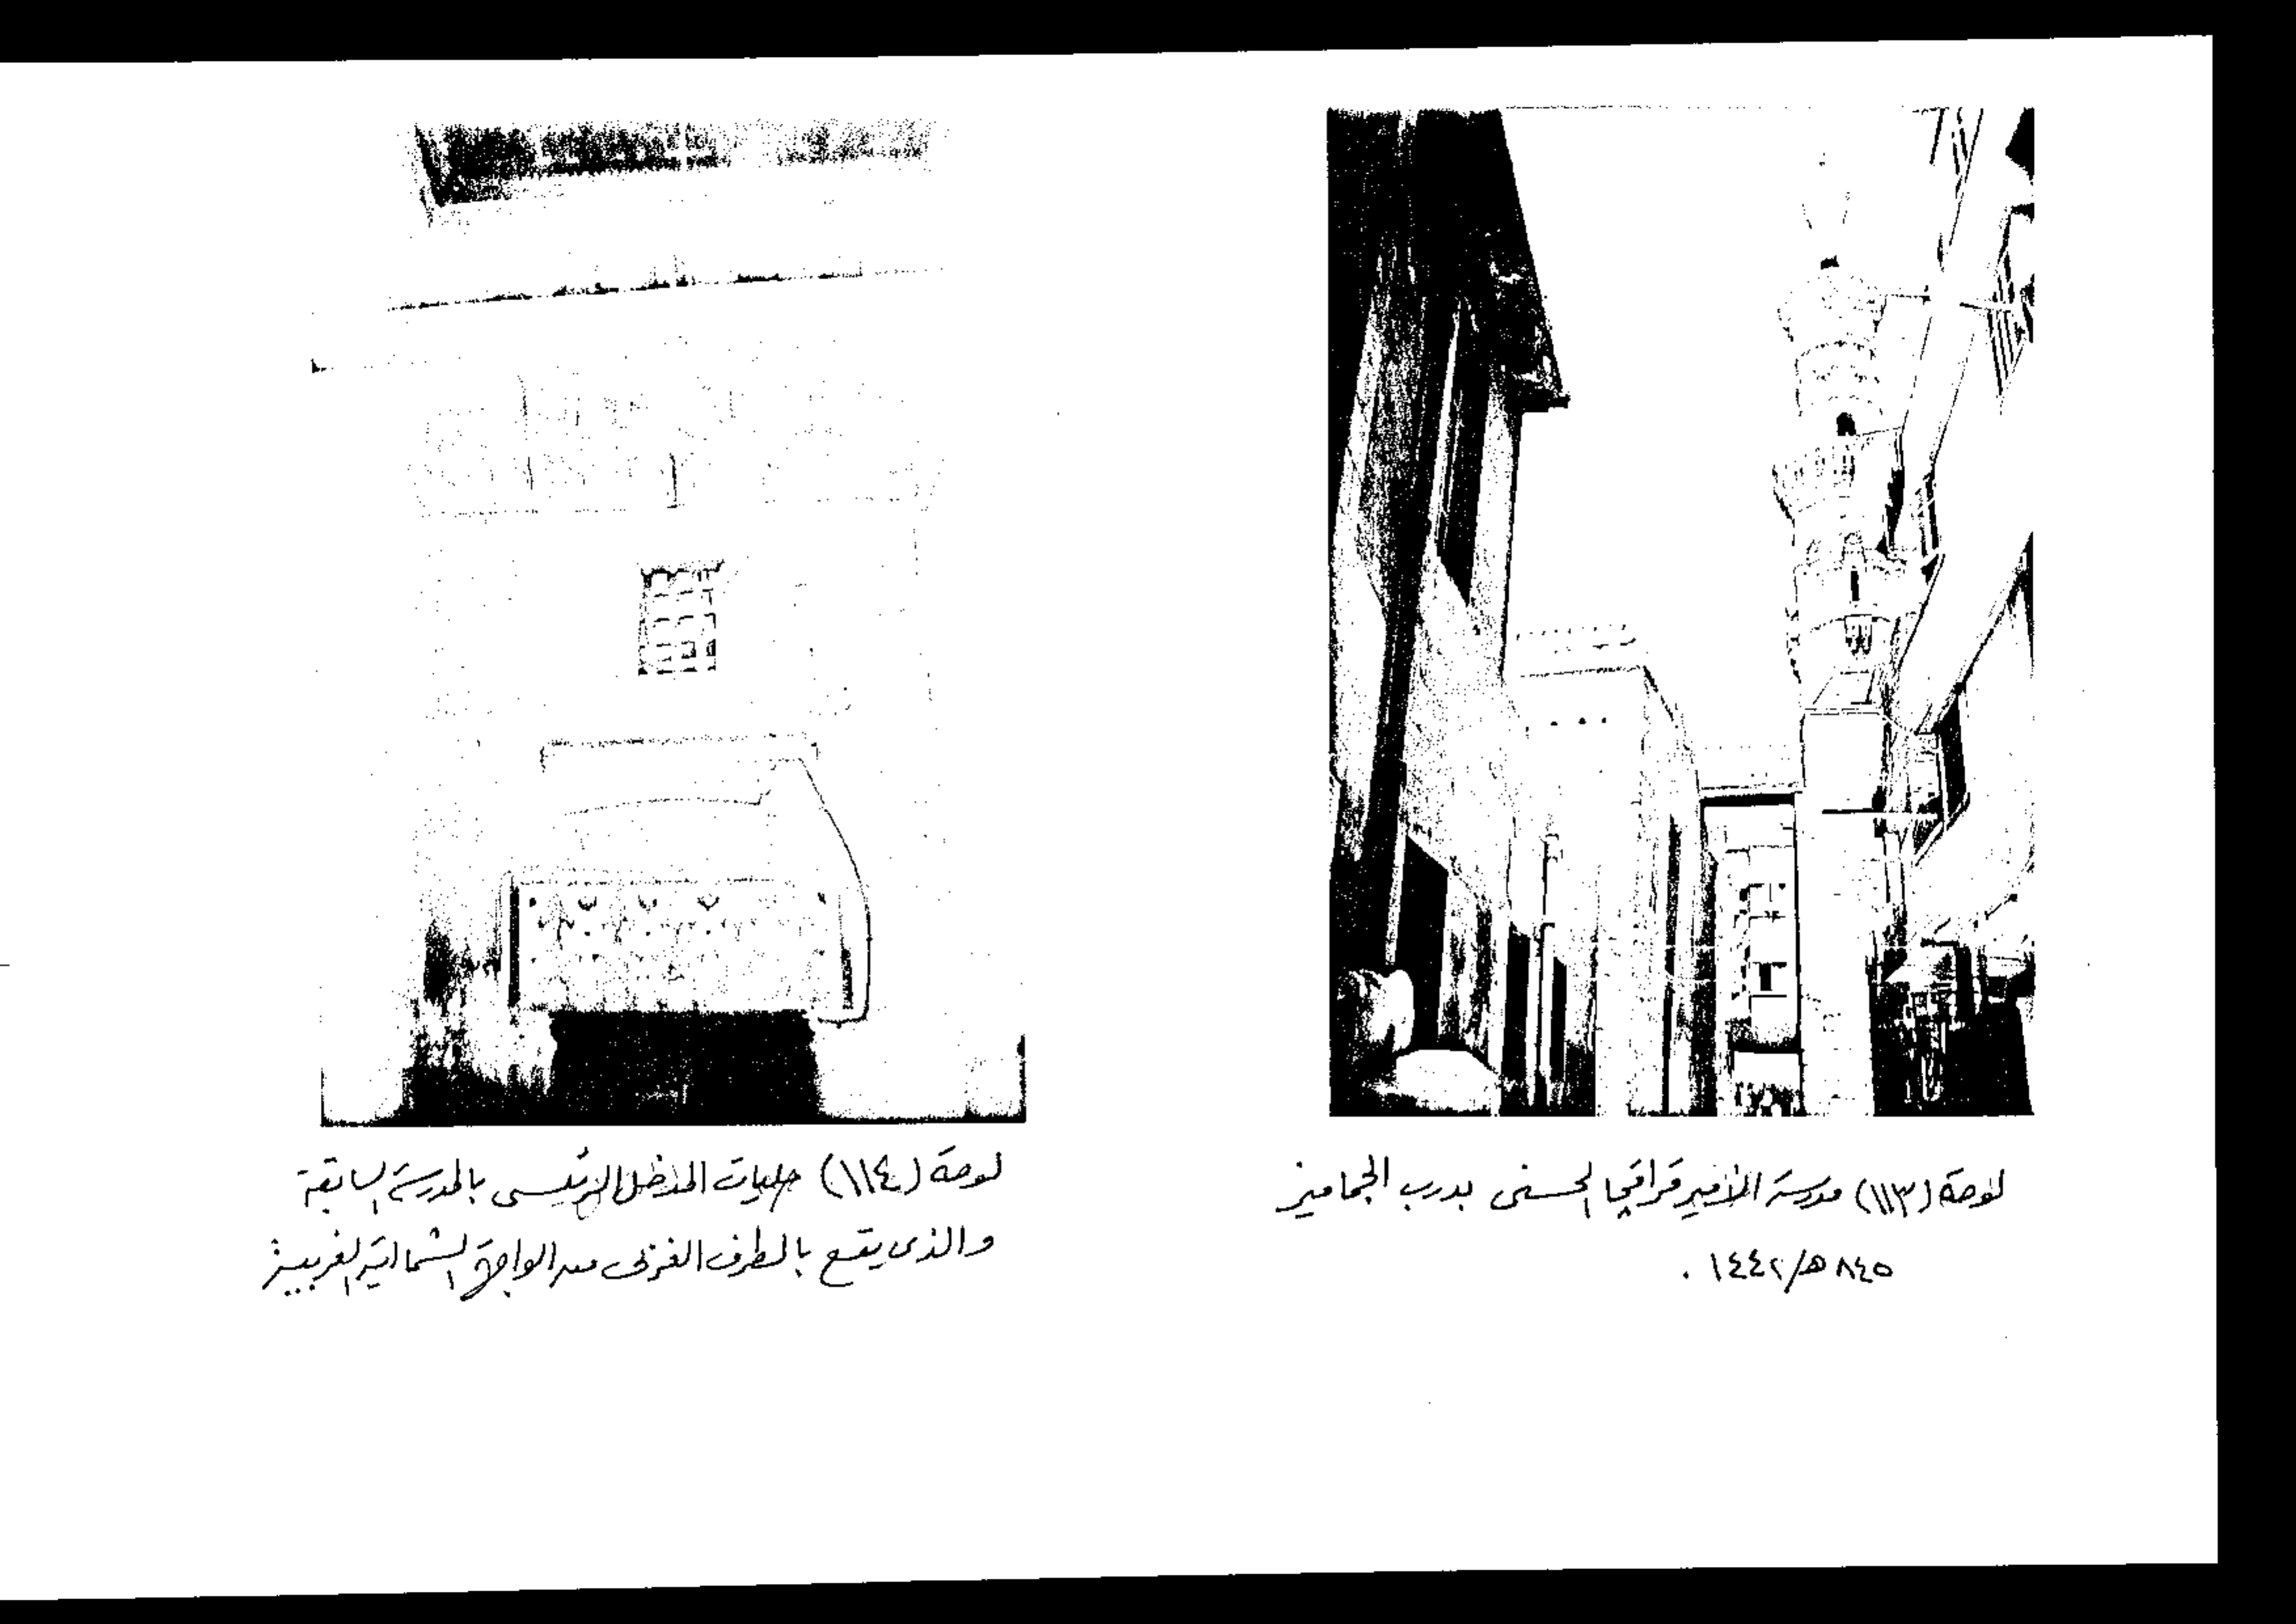 لوحة (١١٣) مدرسة الأمير قراقجا الحسنى بدرب الجماميز
٨٤٥ هـ/١٤٤٢ .
لوحة (١١٤) حليات المدخل الرئيسى بالمدرسة السابقة
والذى يقع بالطرف الغربى من الواجهة الشمالية الغربية